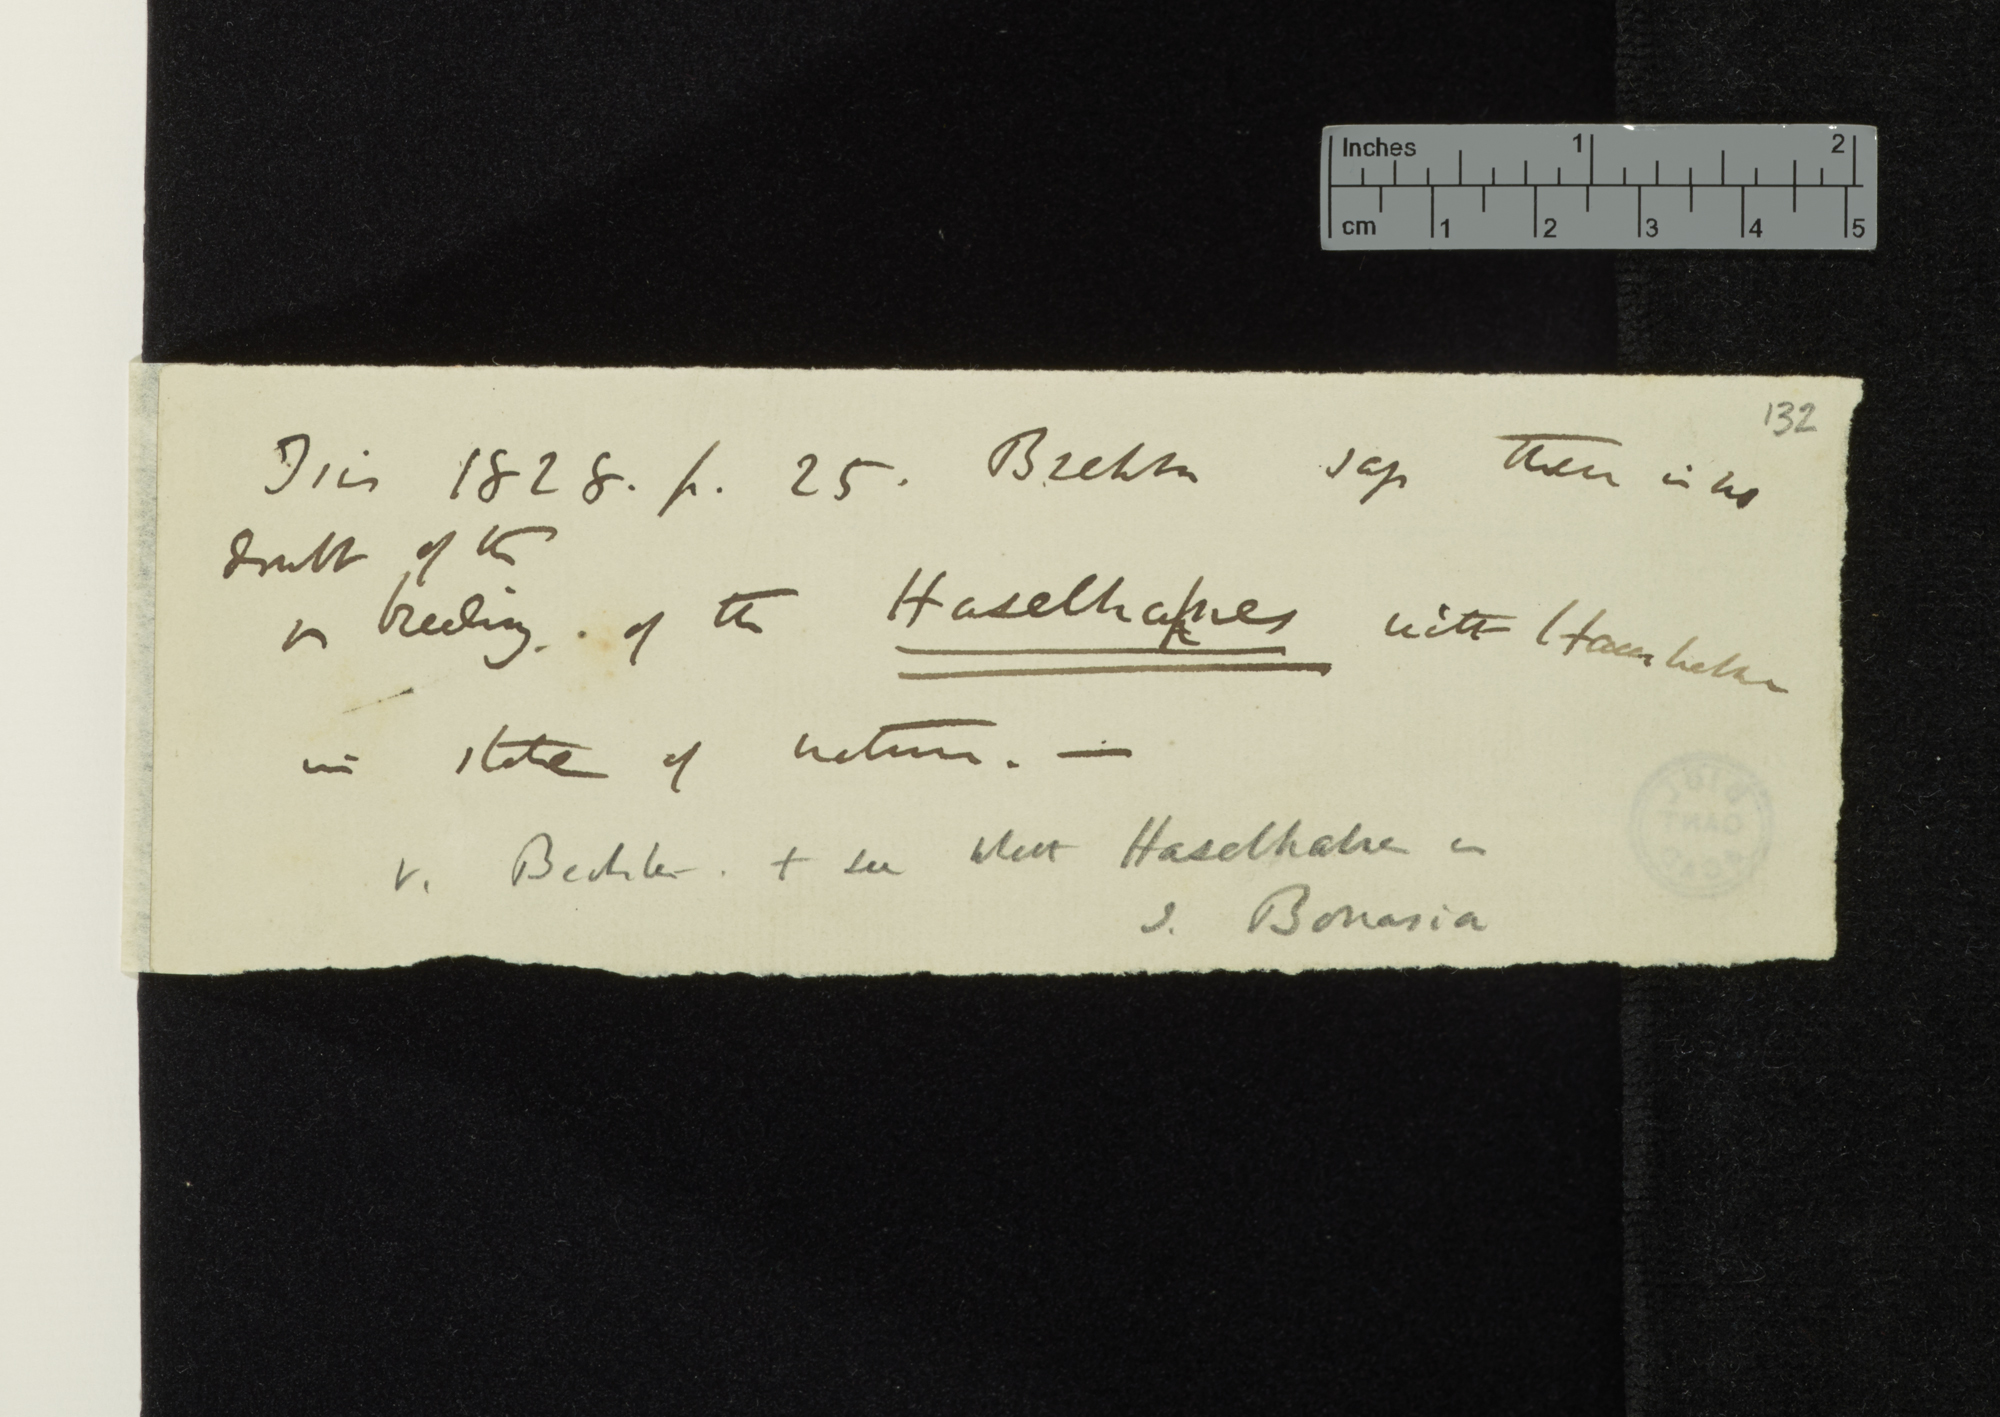 132
Isis 1828. p. 25. Brehm says there is no
doubt of the
breeding. of the Haselhahnes with Haushuhn
in state of nature. —
v. Bechstein. + see what Haselhahn is
S. Bonasia
Inches 1 2
cm 1 2 3 4 5